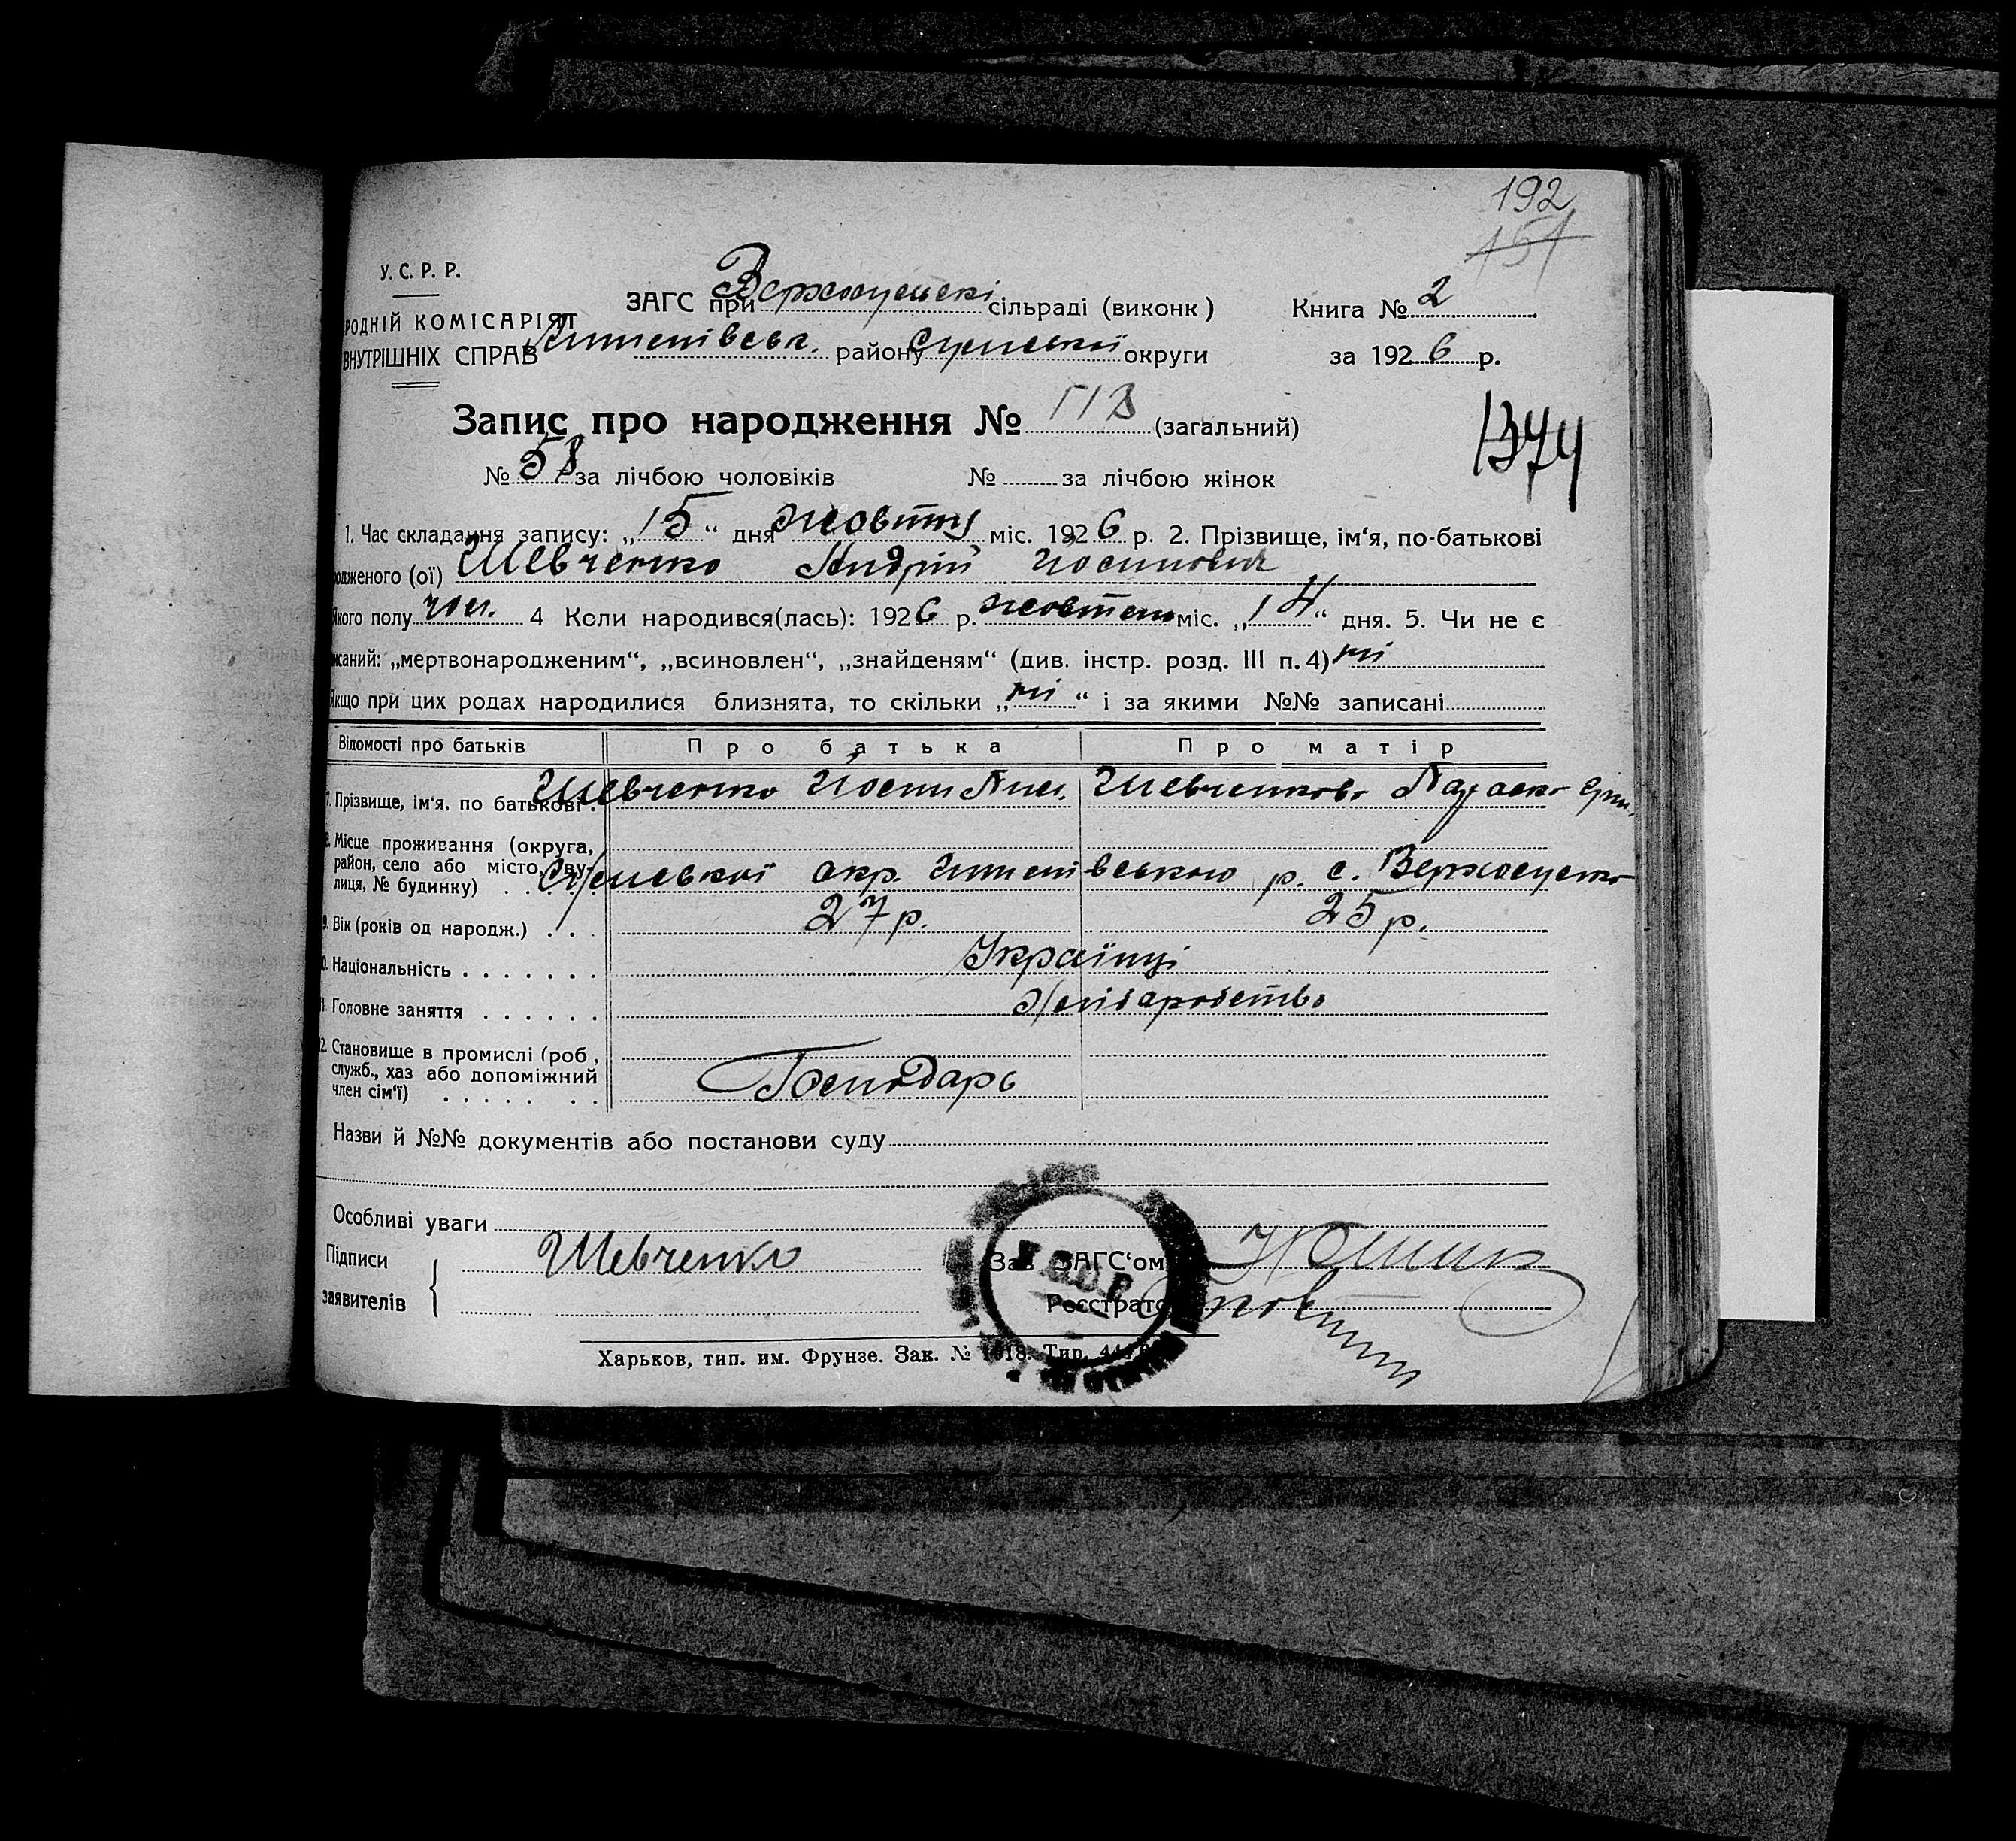 192
151
У. С. Р. Р.
РОДНІЙ КОМІСАРІЯТ
ВНУТРІШНІХ СПРАВ
ЗАГС при сільраді (виконк ) Книга № 2
району Сумської округи за 1926 р.
Запис про народження № (загальний)
1374
№ 58 за лічбою чоловіків № за лічбою жінок
1. Час складання запису: „15“ дня жовтня міс. 1926 р. 2. Прізвище, ім‘я, по-батькові
одженого (ої) Шевченко Андрій Йосипович
якого полу чол. 4 Коли народився(лась): 1926 р. жовтень міс. „14“ дня. 5. Чи не є
исаний: „мертвонародженим“, „всиновлен“, „знайденям“ (див. інстр. розд. III п. 4) ні
Якщо при цих родах народилися близнята, то скільки „ні“ і за якими №№ записані
Відомості про батьків Про батька Про матір
7. Прізвище, ім‘я, по батькові . Шевченко Йосип Шевченкова Параска
8. Місце проживання (округа,
район, село або місто, ву-
лиця, № будинку) . . Сумської окр. р. с. Верхосулка
9. Вік (років од народж.) . . . 27 р. 25 р.
0. Національність . . . . . . . Українці
1. Головне заняття . . . . . . Хліборобство
2. Становище в промислі (роб ,
служб., хаз або допоміжний
член сім‘ї) . . . . . . . Господарь
Назви й №№ документів або постанови суду
Особливі уваги
Підписи
заявителів
Шевченко
Зав ЗАГС‘ом
Реєстрато
Харьков, тип. им. Фрунзе. Зак. № Тир.